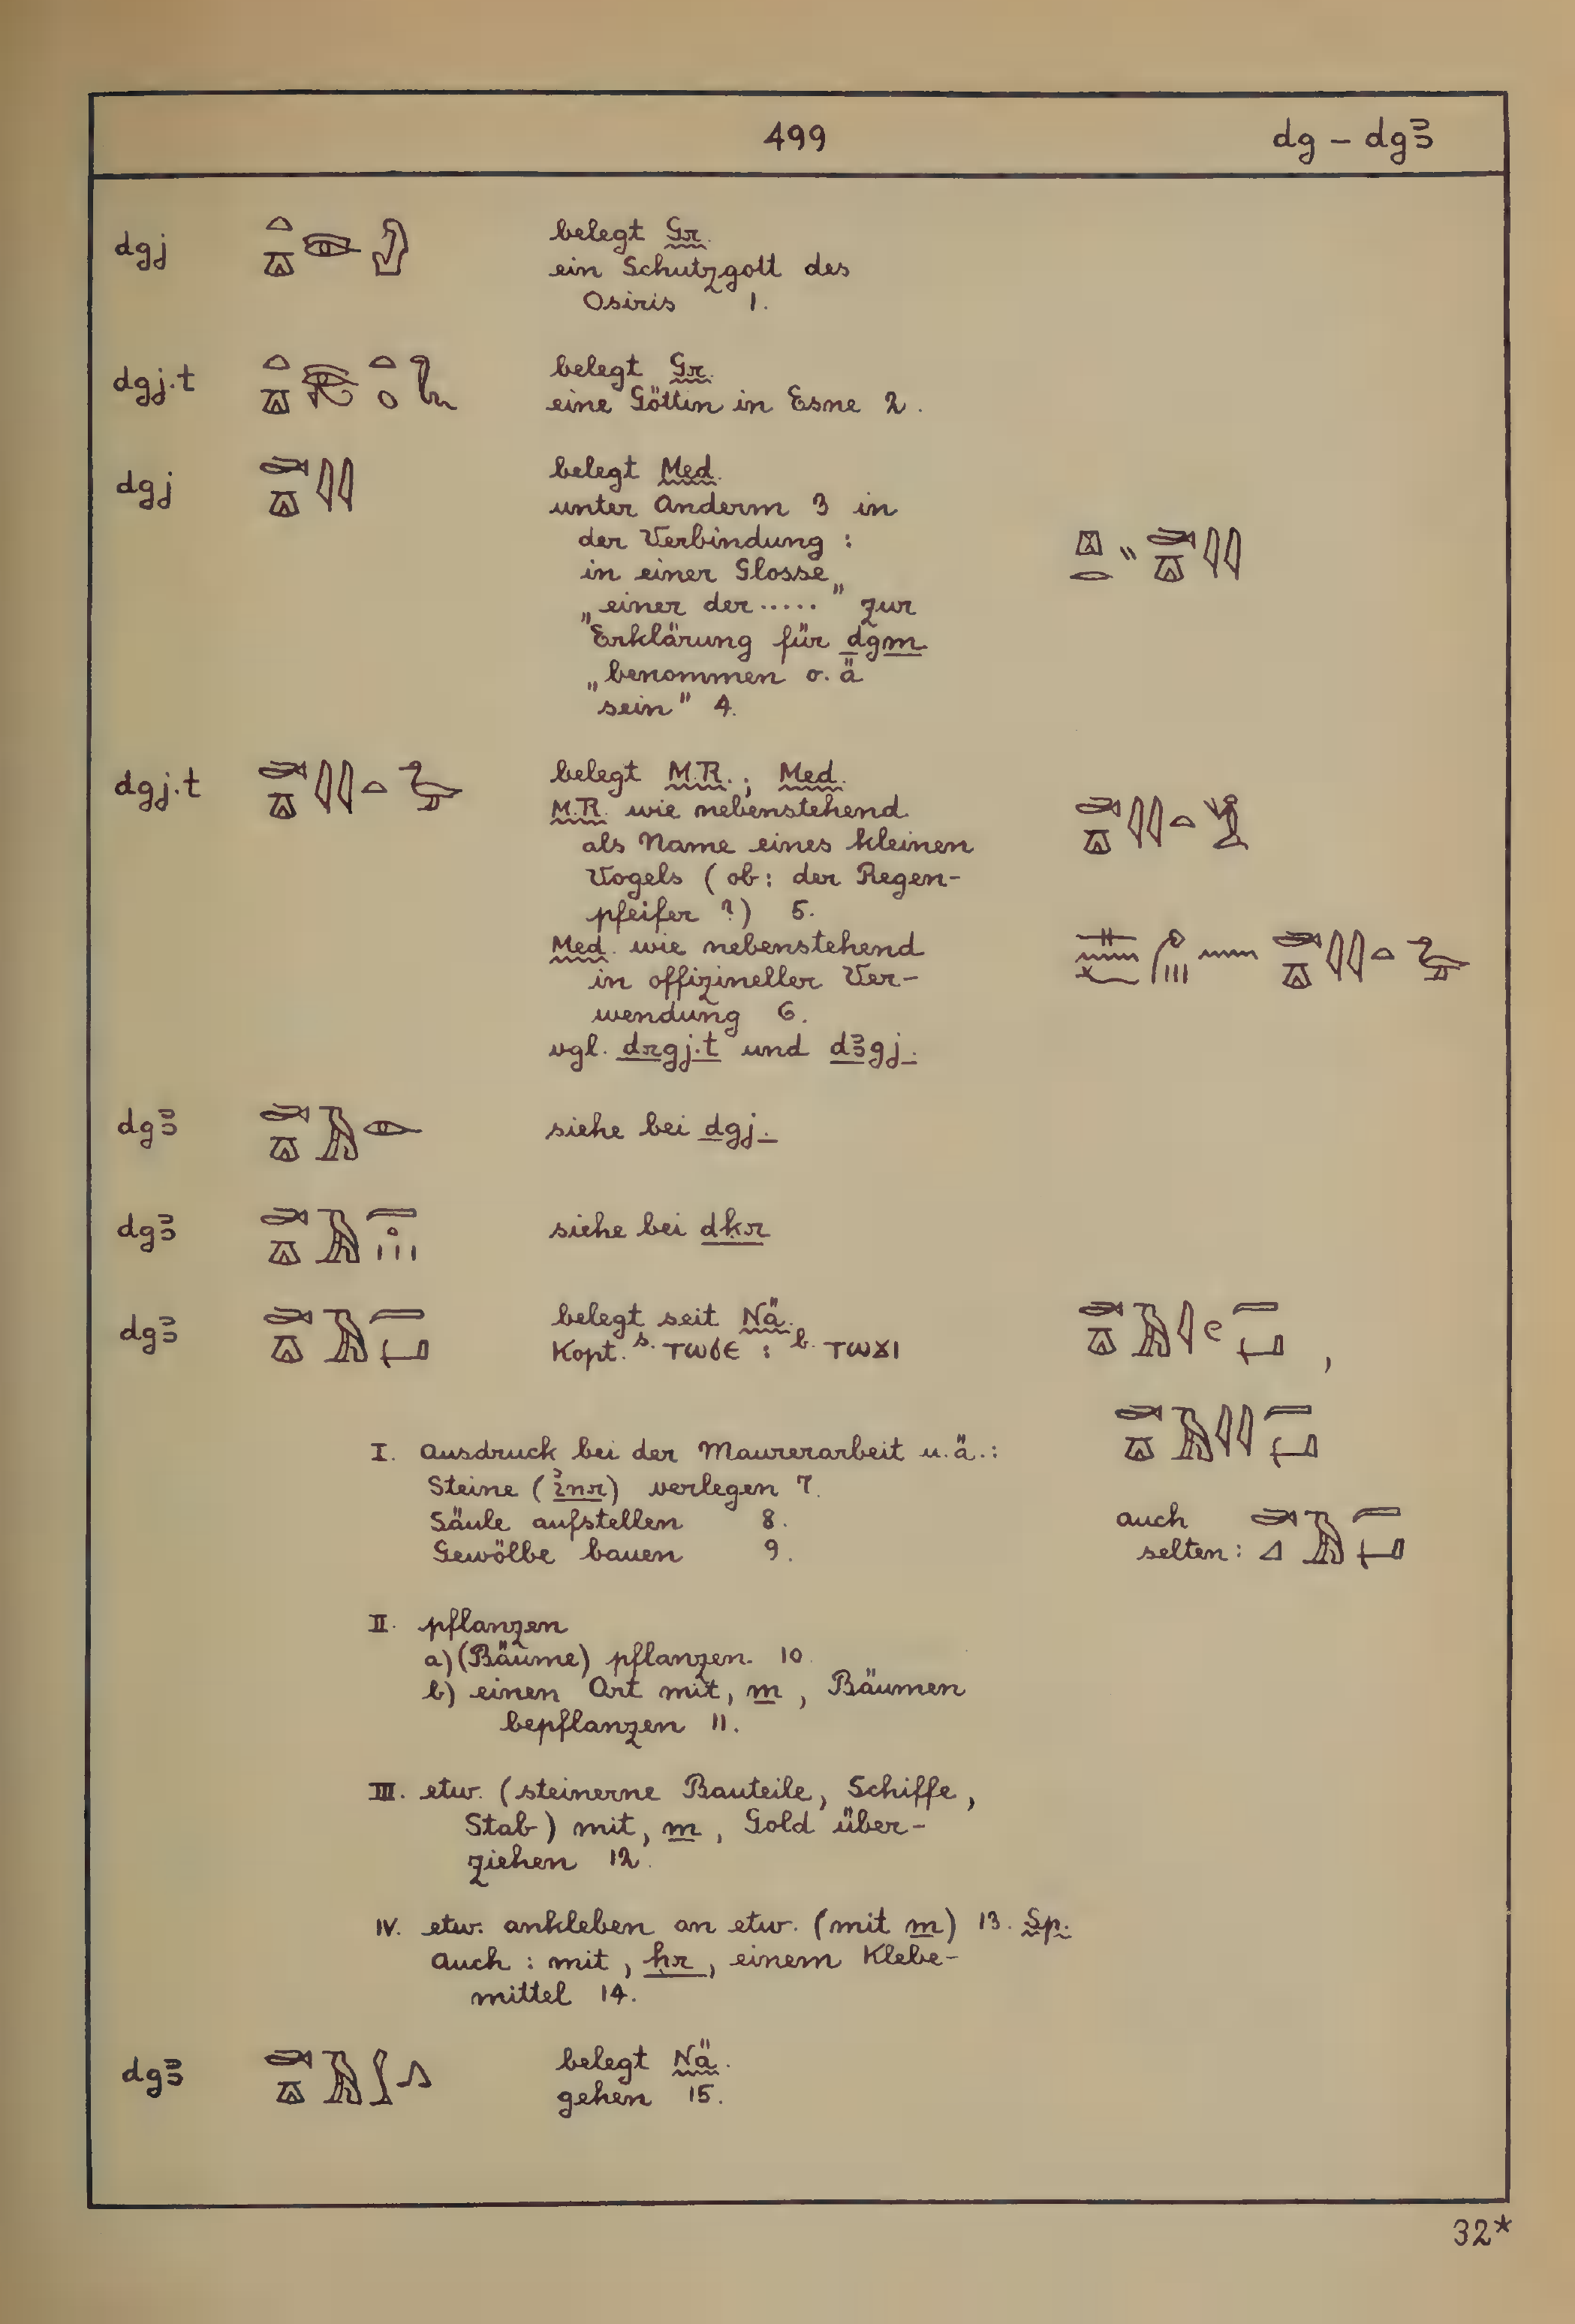 499 dg – dgꜣ
dgj belegt Gr.
ein Schutzgott des
Osiris 1.
dgj.t belegt Gr.
eine Göttin in Esne 2.
dgj belegt Med.
unter Anderm 3 in
der Verbindung :
in einer Glosse
„einer der ....." zur
Erklärung für dgm
„benommen o. ä
sein" 4.
dgj.t belegt M.R.; Med.
M.R. wie nebenstehend
als Name eines kleinen
Vogels (ob: der Regen-
pfeifer ?) 5.
Med. wie nebenstehend
in offizineller Ver-
wendung 6.
vgl. drgj.t und dꜣgj.
dgꜣ siehe bei dgj.
dgꜣ siehe bei dḳr
dgꜣ belegt seit Nä.
Kopt. s. ⲧⲱϭⲉ : b. ⲧⲱϫⲓ ,
I. Ausdruck bei der Maurerarbeit u. ä.:
Steine (ỉnr) verlegen 7.
Säule aufstellen 8. auch
Gewölbe bauen 9. selten:
II. pflanzen
a) (Bäume) pflanzen. 10.
b) einen Ort mit, m, Bäumen
bepflanzen 11.
III. etw. (steinerne Bauteile, Schiffe,
Stab) mit, m, Gold über-
ziehen 12.
IV. etw. ankleben an etw. (mit m) 13. Sp.
Auch : mit, ḥr, einem Klebe-
mittel 14.
dgꜣ belegt Nä.
gehen 15.
32*